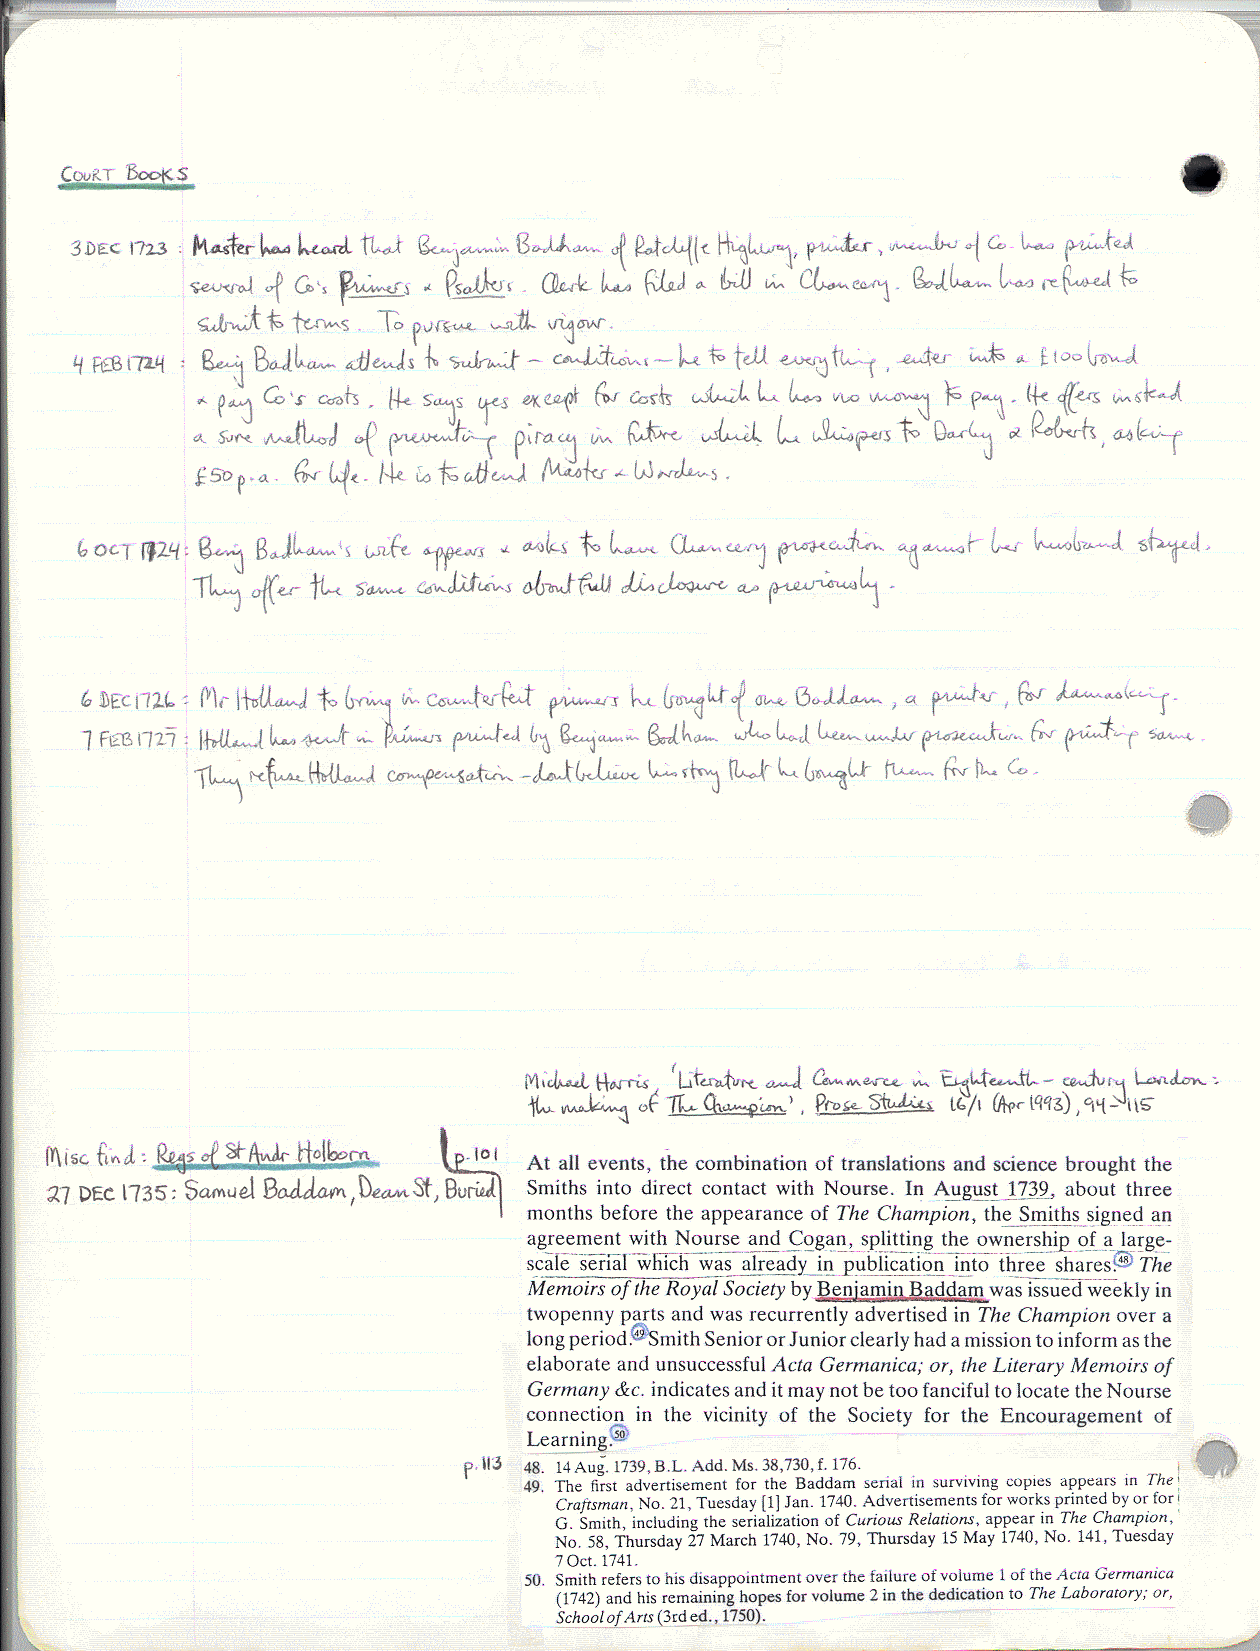 COURT BOOKS
3 DEC 1723 : Master has heard that Benjamin Badham of Ratcliffe Highway, printer, member of Co. has printed
several of Co's Primers & Psalters. Clerk has filed a bill in Chancery. Badham has refused to
submit to terms. To pursue with vigour.
4 FEB 1724 : Benj Badham attends to submit – conditions – he to tell everything, enter into a £100 bond
& pay Co's costs. He says yes except for costs which he has no money to pay. He offers instead
a sure method of preventing piracy in future which he whispers to Darby & Roberts, asking
£50 p.a. for life. He is to attend Master & Wardens.
6 OCT 1724: Benj Badham's wife appears & asks to have Chancery prosecution against her husband stayed.
They offer the same conditions about full disclosure as previously.
6 DEC 1726 : Mr Holland to bring in counterfeit primers he bought of one Baddam, a printer, for damasking.
7 FEB 1727 : Holland has sent in Primers printed by Benjamin Badham who had been under prosecution for printing same.
They refuse Holland compensation – dont believe his story that he bought them for the Co.
Michael Harris, 'Literature and Commerce in Eighteenth-century London:
the making of The Champion', Prose Studies 16/1 (Apr 1993), 94–115
Misc find: Regs of St Andr Holborn
27 DEC 1735: Samuel Baddam, Dean St, Buried
p.101
At all events, the combination of translations and science brought the
Smiths into direct contact with Nourse. In August 1739, about three
months before the appearance of The Champion, the Smiths signed an
agreement with Nourse and Cogan, splitting the ownership of a large-
scale serial which was already in publication into three shares.48 The
Memoirs of the Royal Society by Benjamin Baddam was issued weekly in
twopenny parts and was recurrently advertised in The Champion over a
long period.49 Smith Senior or Junior clearly had a mission to inform as the
elaborate and unsuccessful Acta Germanica; or, the Literary Memoirs of
Germany &c. indicates and it may not be too fanciful to locate the Nourse
connection in the vicinity of the Society for the Encouragement of
Learning.50
p.113
48. 14 Aug. 1739, B.L. Add. Ms. 38,730, f. 176.
49. The first advertisement for the Baddam serial in surviving copies appears in The
Craftsman, No. 21, Tuesday [1] Jan. 1740. Advertisements for works printed by or for
G. Smith, including the serialization of Curious Relations, appear in The Champion,
No. 58, Thursday 27 March 1740, No. 79, Thursday 15 May 1740, No. 141, Tuesday
7 Oct. 1741.
50. Smith refers to his disappointment over the failure of volume 1 of the Acta Germanica
(1742) and his remaining hopes for volume 2 in the dedication to The Laboratory; or,
School of Arts (3rd ed., 1750).